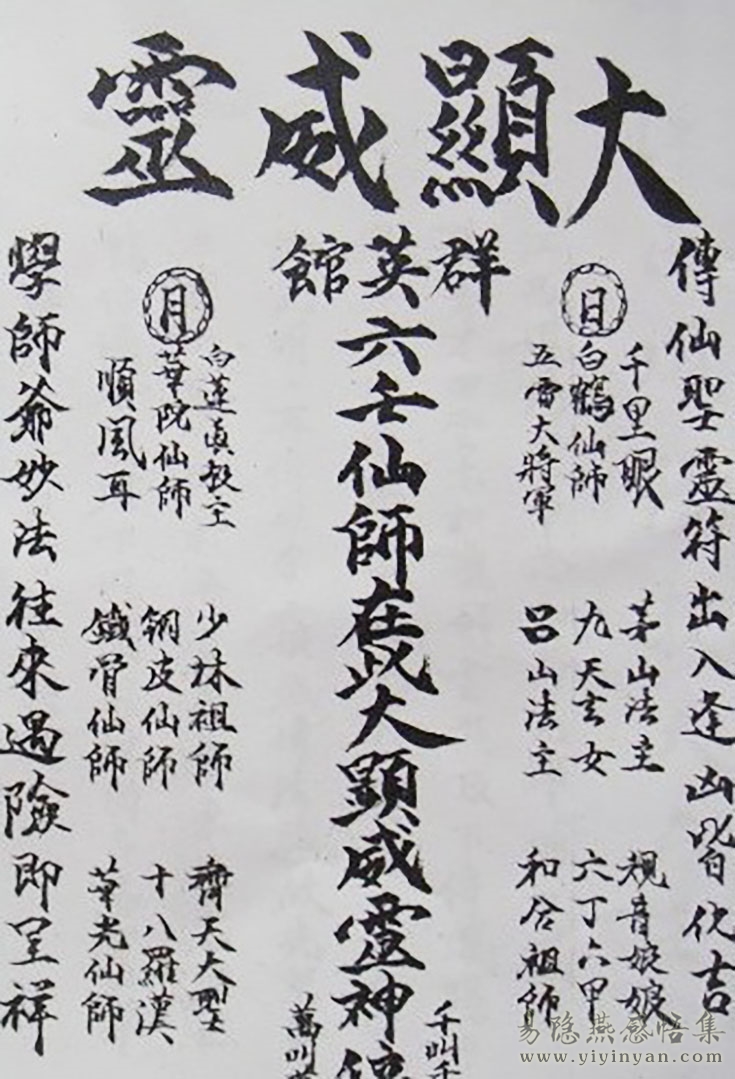 大顯威靈
傳仙聖靈符出入逢凶皆化吉
日
千里眼
白鶴仙師
五雷大將軍
茅山法主
九天玄女
呂山法主
觀音娘娘
六丁六甲
和合祖師
群英館
六壬仙師在此大顯威靈神
千叫千
萬叫萬
月
白蓮真教主
華陀仙師
順風耳
少林祖師
銅皮仙師
鐵骨仙師
齊天大聖
十八羅漢
華光仙師
學師爺妙法往來遇險即呈祥
易隐燕感悟集
www.yiyinyan.com